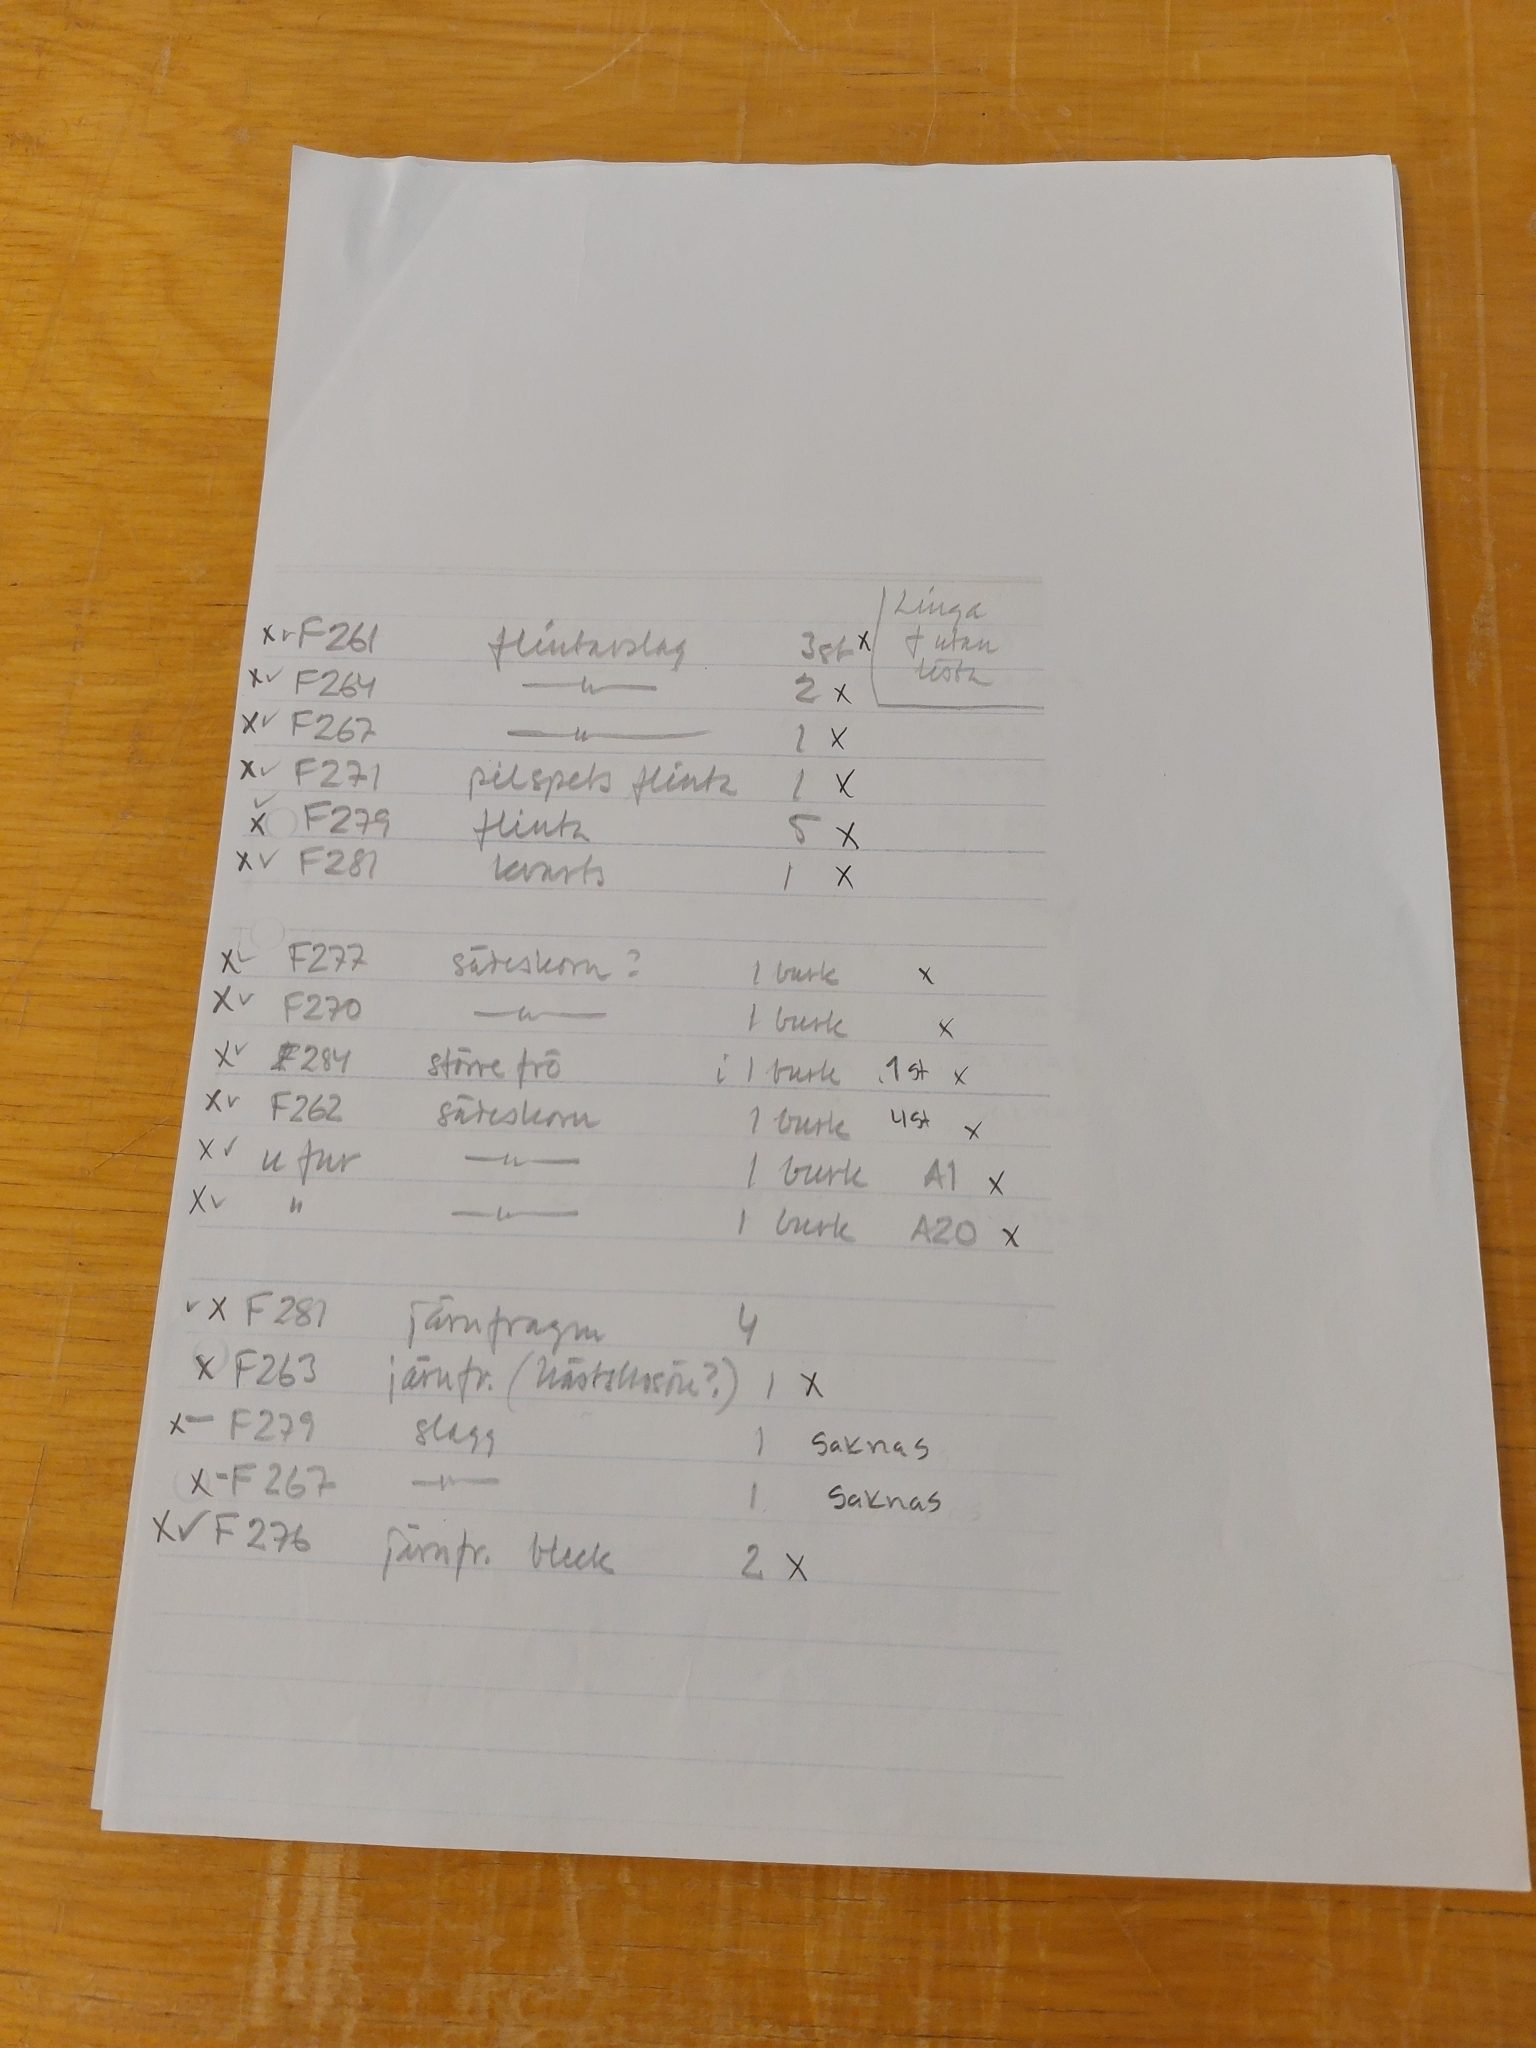 Linga
f utan
x ✓ F261 flintavslag 3st x
x ✓ F264 —"— 2 x
x ✓ F267 —"— 1 x
x ✓ F271 pilspets flinta 1 x
x ✓ F279 flinta 5 x
x ✓ F281 kvarts 1 x
x ✓ F277 sädeskorn? 1 burk x
x ✓ F270 —"— 1 burk x
x ✓ F284 större frö i 1 burk 1st x
x ✓ F262 sädeskorn 1 burk 4st x
x ✓ u fnr —"— 1 burk A1 x
x ✓ " —"— 1 burk A20 x
✓ x F281 järnfragm 4
x F263 järnfr. (hästskosöm?) 1 x
x – F279 slagg 1 saknas
x – F267 —"— 1 saknas
x ✓ F276 järnfr. bleck 2 x